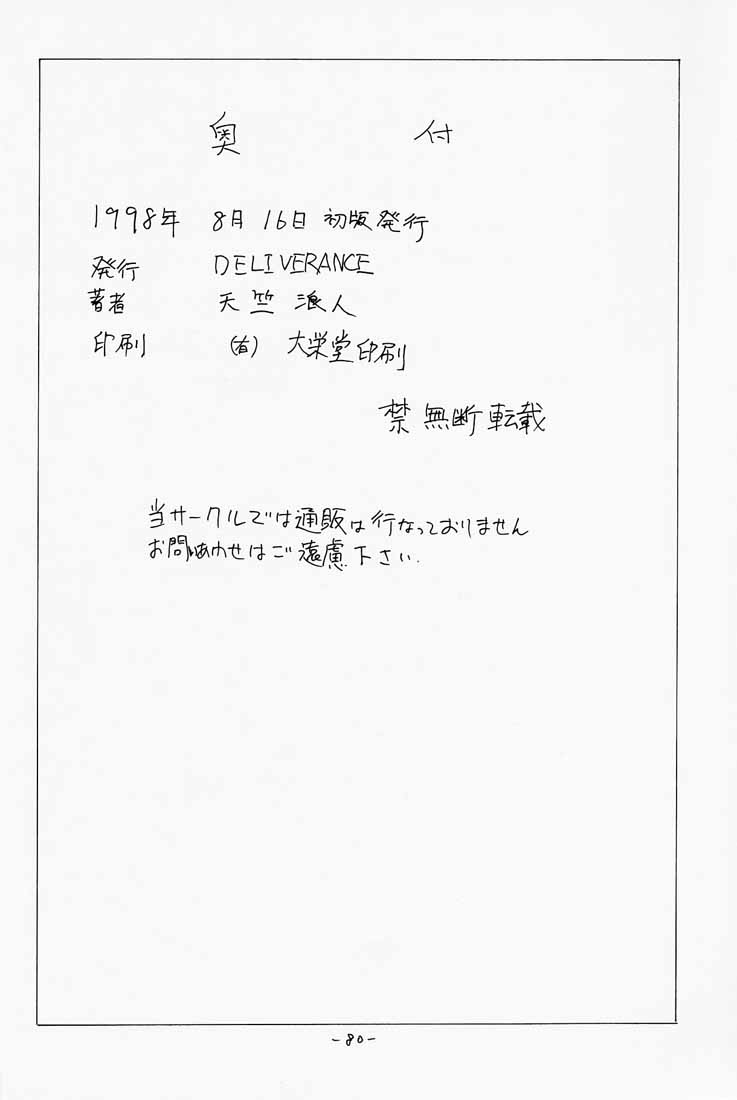 奥付
1998年 8月 16日 初版発行
発行 DELIVERANCE
著者 天竺 浪人
印刷 (有) 大栄堂印刷
禁 無断転載
当サークルでは通販は行なっておりません
お問いあわせはご遠慮下さい.
-80-